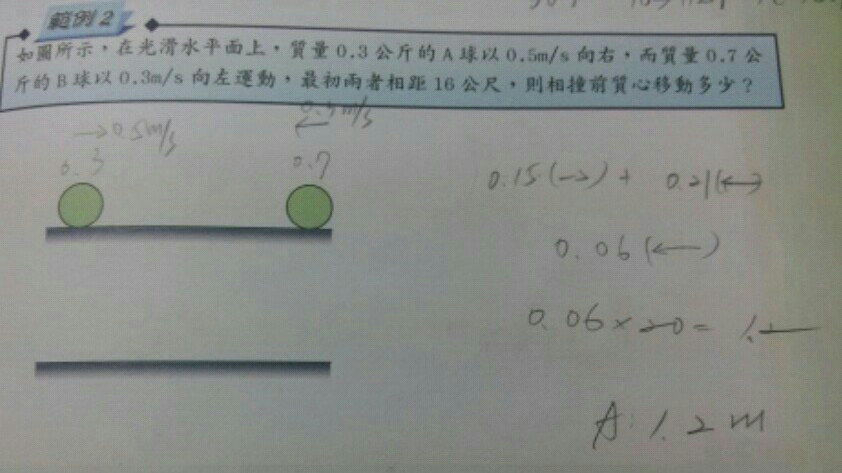 範例2
如圖所示，在光滑水平面上，質量0.3公斤的A球以0.5m/s向右，而質量0.7公
斤的B球以0.3m/s向左運動，最初兩者相距16公尺，則相撞前質心移動多少？
→0.5m/s
0.3m/s
←
0.3
0.7
0.15(→)+ 0.21(←)
0.06(←)
0.06×20=1.2
A:1.2m